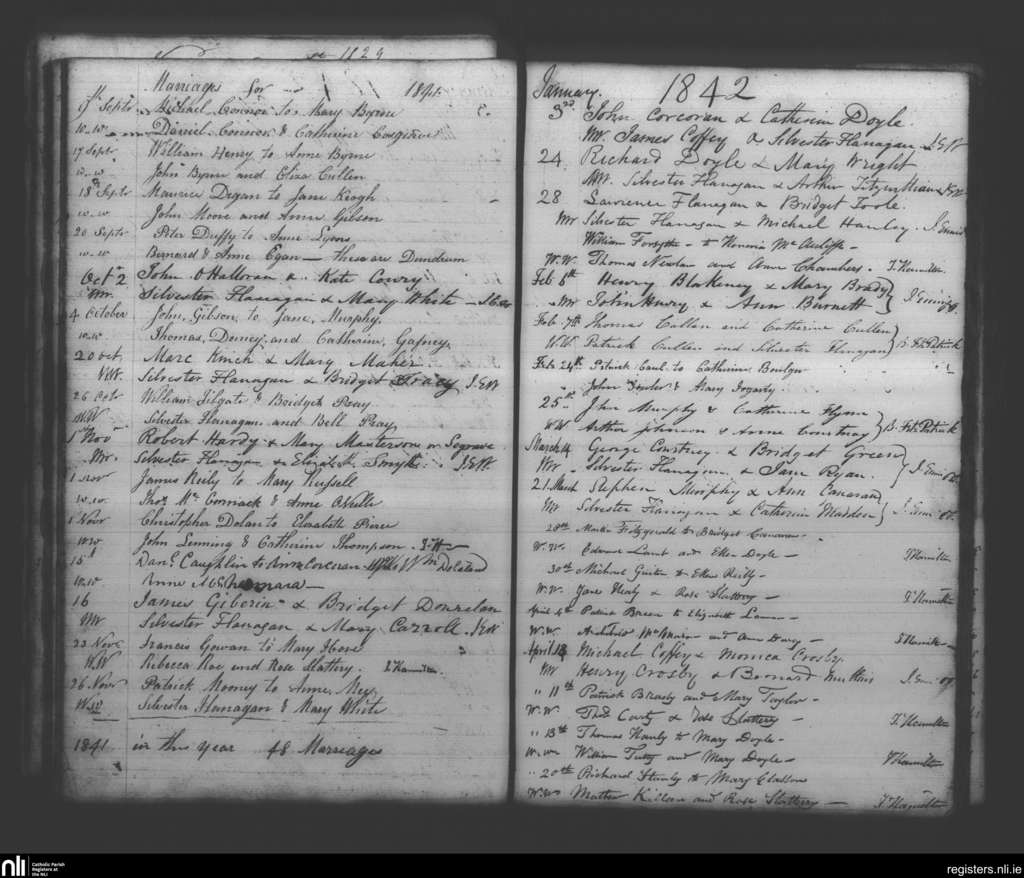 1829
Marriages for 1841
9th Septr Michael Connor to Mary Byrne
w.w. Daniel Connor & Catherine Cosgrave
17 Septr William Henry to Anne Byrne
w.w John Byrne and Eliza Cullen
18th Septr Maurice Degan to Jane Keogh
w.w John Moore and Anne Gibson
20 Septr Peter Duffy to Anne Lyons
w.w Bernard & Anne Egan — These are Dundrum
Octr 2 John O'Halloran a.. Kate Conry
Mr. Silvester Flanagan & Mary White
4 October John Gibson to Jane Murphy
w.w. Thomas Denney and Catherine Gafney
20 oct. Marc Kinch & Mary Maher
W.W. Silvester Flanagan & Bridget Tracy J.EW
26 Octr William Filgate & Bridget Reay
W.W Silvester Flanagan and Bell Reay
1 Novr Robert Hardy & Mary Masterson or Segrave
Mr. Silvester Flanagan & Elizabeth Smyth J.EW.
1 Novr James Reily to Mary Russell
w.w. Thos Mc Cormack & Anne ONeille
1 Novr Christopher Dolan to Elizabeth Pierce
ww John Lenning & Catherine Thompson
15th Danl Caughlin to Ann Corcoran
w.w Anne
16 James Giborin & Bridget Donnelan
Mr Silvester Flanagan & Mary Carroll J.EW
23 Novr Frances Gowan to Mary
W.W Rebecca Roe and Rose Slattery. Hamilton
26 Novr Patrick Mooney to Anne Ney
W.W Silvester Flanagan & Mary White
1841 in this year 48 Marriages
January. 1842
3rd John Corcoran & Catherin Doyle.
Mr. James Coffey & Silvester Flanagan J.EW
24 Richard Doyle & Mary Wright
MW. Silvester Flanagan & Arthur Fitzwilliam
28 Lawrence Flanagan & Bridget Toole.
Mr Silvester Flanagan & Michael Hanley.
William Forsythe - to Honoria Mc Auliffe -
W.W. Thomas Newlan and Ann Chambers. T. Hamilton
Feb 6th Henry Blakeney & Mary Brady
Mr John Henry & Ann Burnett
Feb. 7th Thomas Cullen and Catherine Cullen
W.W. Patrick Cullen and Silvester Flanagan B. Fitz Patrick
Feb. 24th Patrick Caul to Catherine
John & Mary Fogarty
25th John Murphy & Catherine Flynn
W.W Arthur Johnson & Anne Courtney B. Fitz Patrick
March 4 George Courtney & Bridget Green
Mr Silvester Flanagan & Jane Ryan.
21 March Stephen Murphy & Ann Canavan
Mr Silvester Flanagan & Catherin Madden
28th Martin Fitzgerald to Bridget Canavan
W.W. Edward Lamb and Ellen Doyle - Hamilton
30th Michael to Ellen Reilly -
W.W. Jane Healy & Rose Slattery - T. Hamilton
April 4th Patrick Bacon to Elizabeth -
W.W. Archibald and Ann Darcy - Hamilton
April 13 Michael Coffey & Monica Crosby.
Mr Henry Crosby & Bernard
" 11th Patrick and Mary Taylor -
W.W. Thos & Rose Slattery - T. Hamilton
" 13th Thomas Hanly to Mary Doyle -
W.W. William and Mary Doyle - Hamilton
" 20th Richard to Mary Glasson
W.W. Mathew Killan and Rose Slattery — T. Hamilton
nli Catholic Parish Registers at the NLI
registers.nli.ie